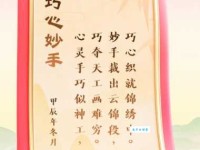 巧心妙手
甲辰年冬月
巧心织就锦绣,
妙手裁出云锦段,
巧夺天工画难穷。
心灵手巧似神工,